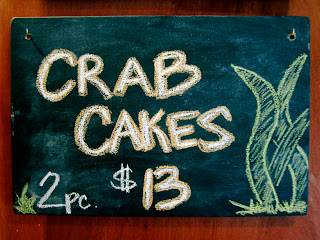 CRAB
CAKES
2 pc. $13